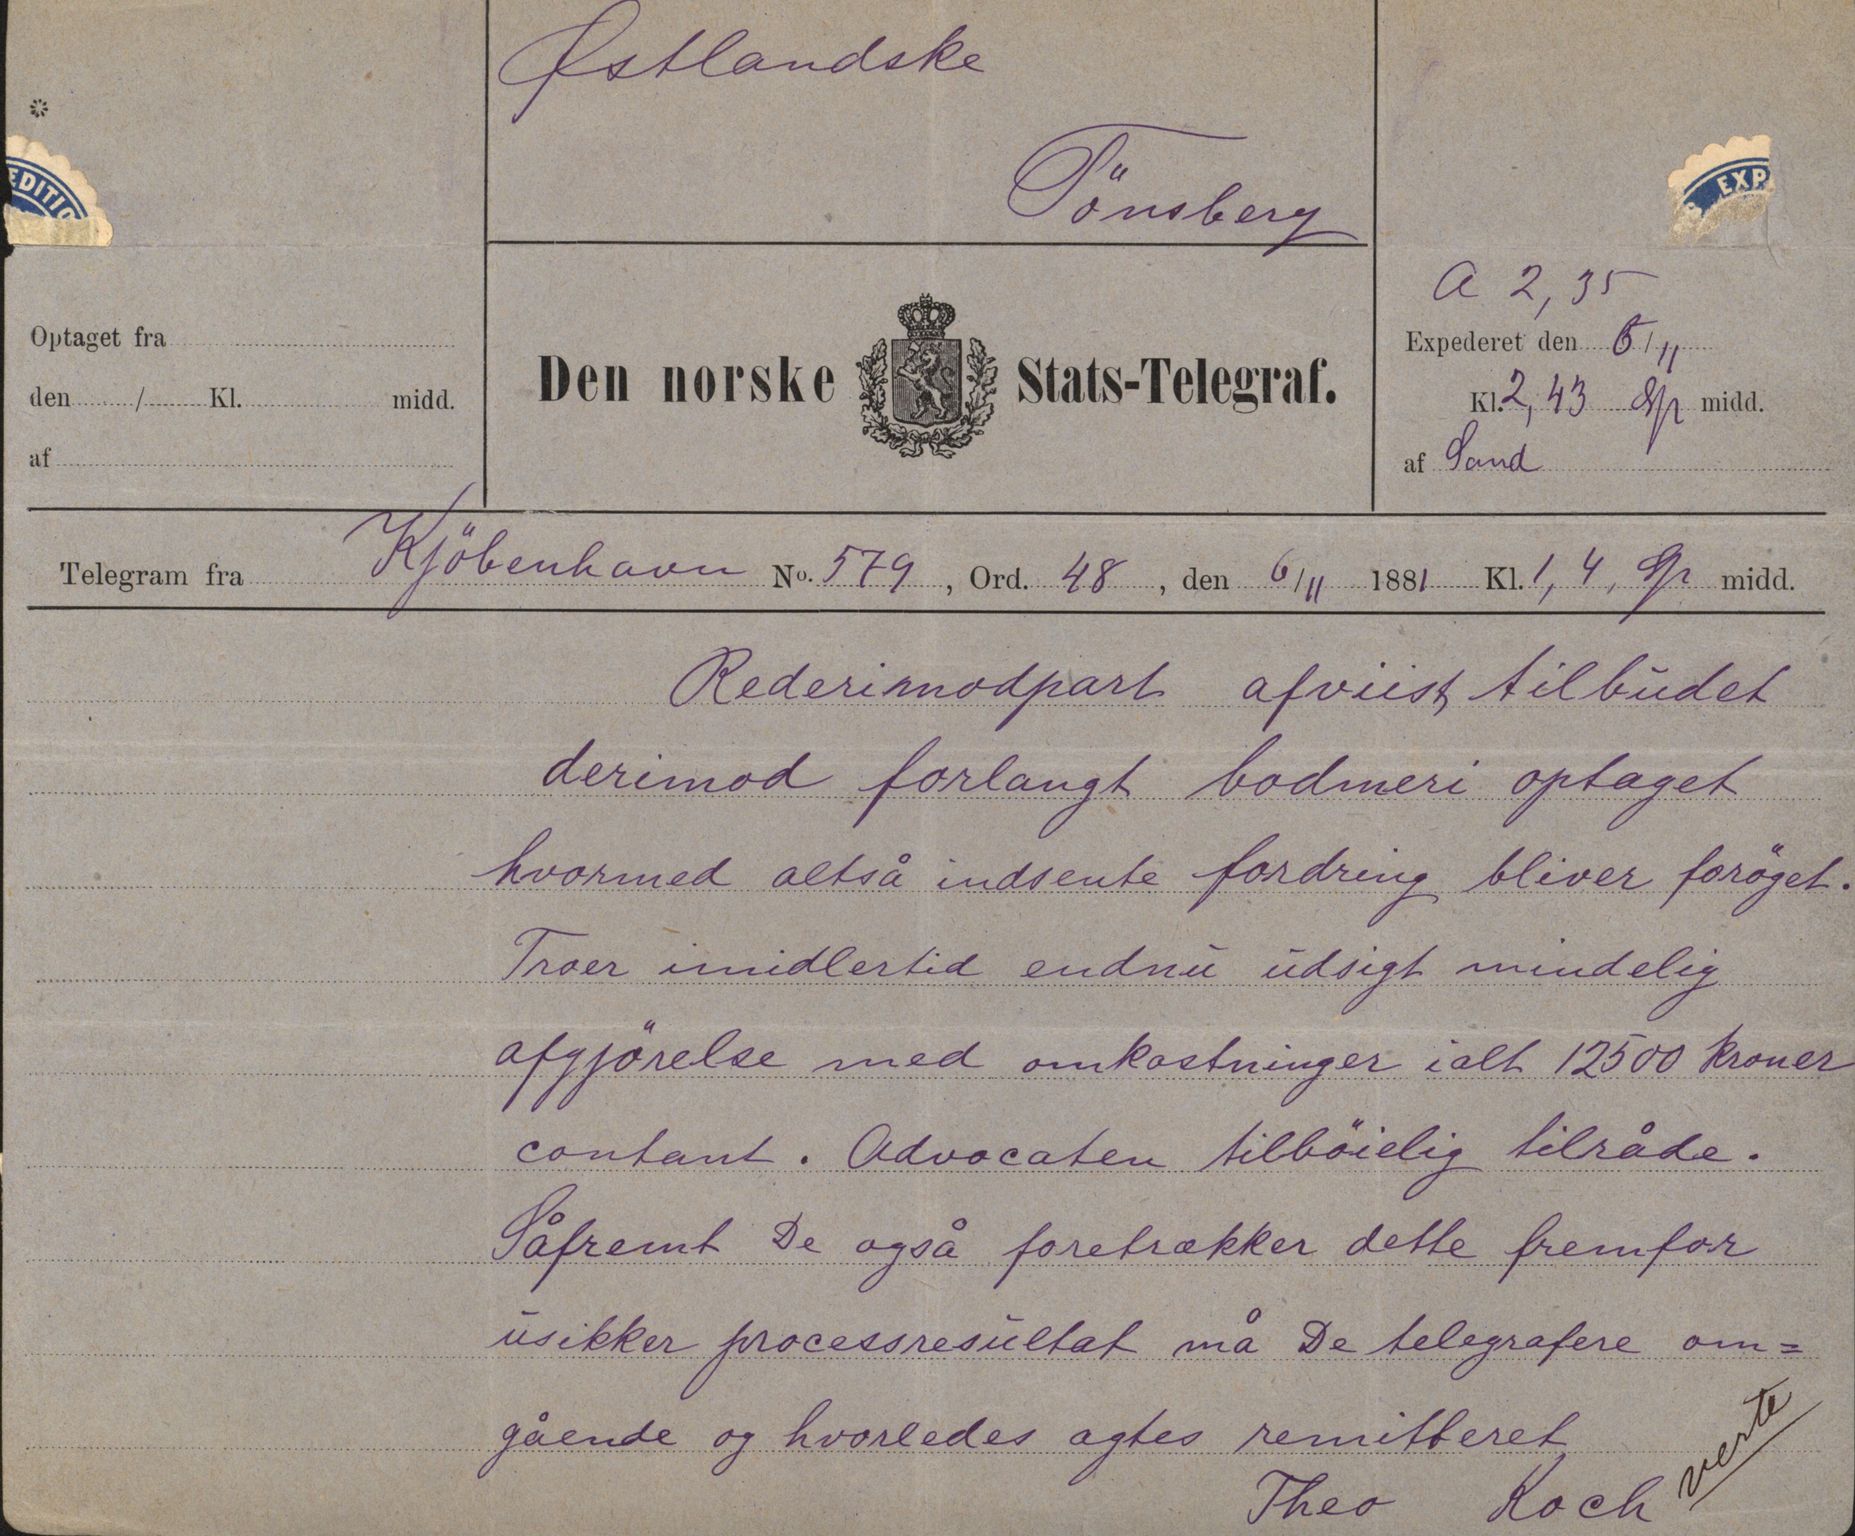 Østlandske
Tönsberg
EDITIO
EXP
A 2,35
Optaget fra
den / Kl. midd.
af
Den norske Stats-Telegraf.
Expederet den 6/11
Kl. 2,43 midd.
af Sand
Telegram fra Kjöbenhavn No. 579, Ord. 48, den 6/11 1881 Kl. 1,4, midd.
Rederimodpart afviist tilbudet
derimod forlangt bodmeri optaget
hvormed altså indsente fordring bliver foröget.
Troer imidlertid endnu udsigt mindelig
afgjörelse med omkostninger ialt 12500 kroner
contant. Advocaten tilböielig tilråde.
Såfremt De også foretrækker dette fremfor
usikker processresultat må De telegrafere om=
gående og hvorledes agtes remitteret
Theo Koch
verte